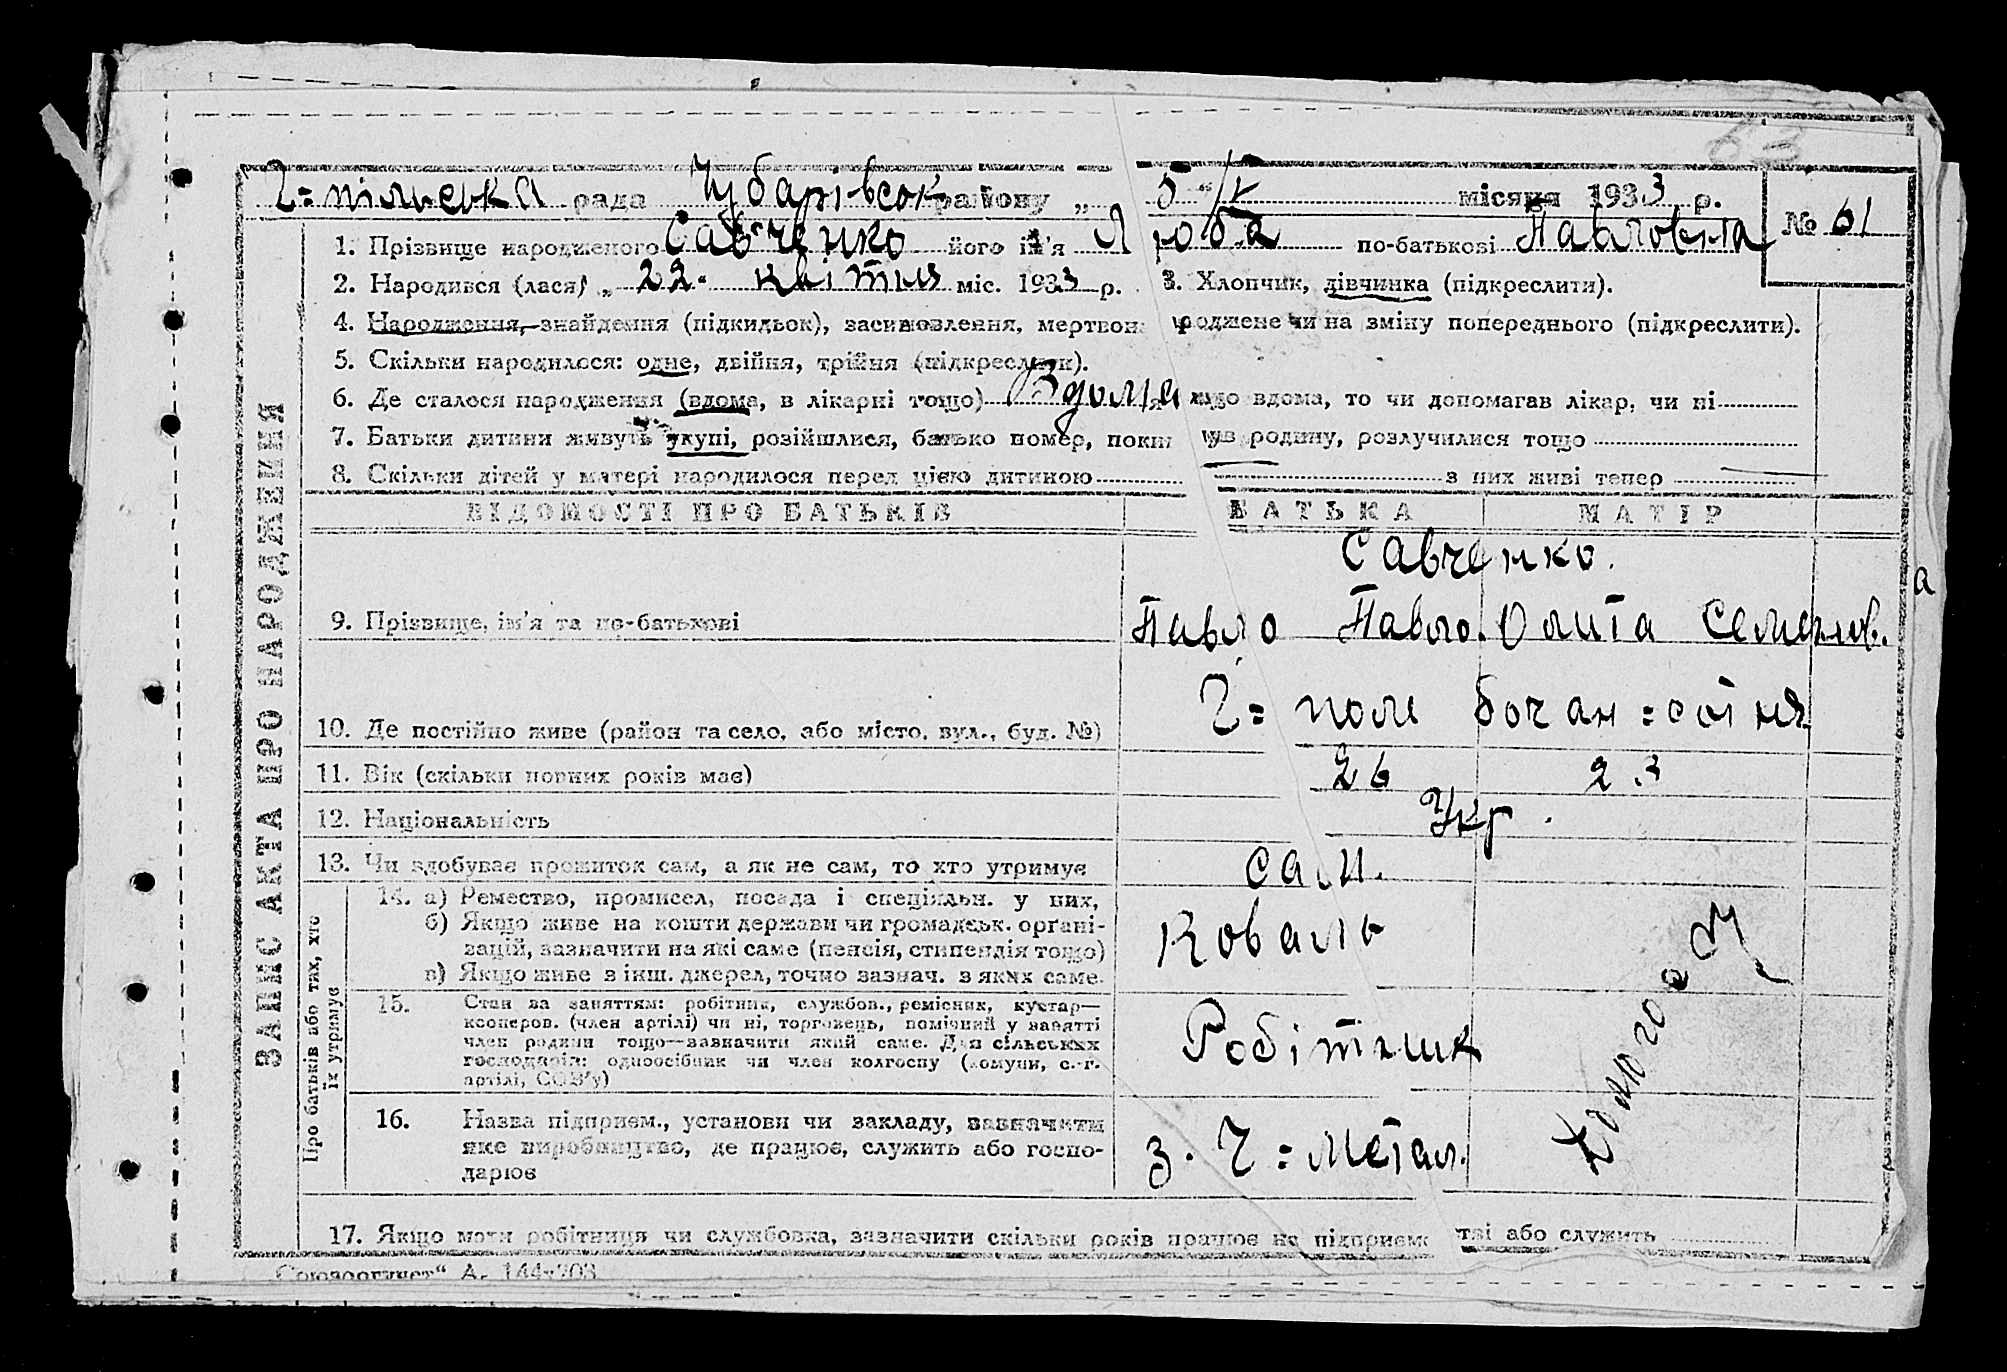 Г=пільська рада Чубарівськ району „ 5 “ /V місяця 1933 р. № 61
1. Прізвище народженого Савченко його ім'я Люба по-батькові Павловна
2. Народився (лася) „ 22. квітня міс. 1933 р. 3. Хлопчик, дівчинка (підкреслити).
4. Народження, знайдення (підкидьок), засиновлення, мертвонароджене чи на зміну попереднього (підкреслити).
5. Скільки народилося: одне, двійня, трійня (підкреслити).
6. Де сталося народження (вдома, в лікарні тощо) Вдома якщо вдома, то чи допомагав лікар, чи ні
7. Батьки дитини живуть укупі, розійшлися, батько помер, покинув родину, розлучилися тощо
8. Скільки дітей у матері народилося перед цією дитиною з них живі тепер
ВІДОМОСТІ ПРО БАТЬКІВ БАТЬКА МАТІР
Савченко.
9. Прізвище, ім'я та по-батькові Павло Павло. Олита Семенов.
10. Де постійно живе (район та село, або місто, вул., буд. №) Г=поле
11. Вік (скільки повних років має) 26 23
12. Національність Укр.
13. Чи здобуває прожиток сам, а як не сам, то хто утримує сам.
14. а) Ремество, промисел, посада і спеціяльн. у них, Коваль
б) Якщо живе на кошти держави чи громадськ. органі-
зацій, зазначити на які саме (пенсія, стипендія тощо)
в) Якщо живе з інш. джерел, точно зазнач. з яких саме.
15. Стан за заняттям: робітник, службов., ремісник, кустар—
кооперов. (член артілі) чи ні, торговець, помічний у занятті
член родини тощо—зазначити який саме. Для сільських
господарів: одноосібник чи член колгоспу (комуни, с.-г.
артілі, СОЗ'у) Робітник
16. Назва підприєм., установи чи закладу, зазначити
яке виробництво, де працює, служить або госпо-
дарює З. Г=метал.
17. Якщо мати робітниця чи службовка, зазначити скільки років працює на підприємстві або служить
ЗАПИС АКТА ПРО НАРОДЖЕННЯ
Про батьків або тих, хто
їх утримує